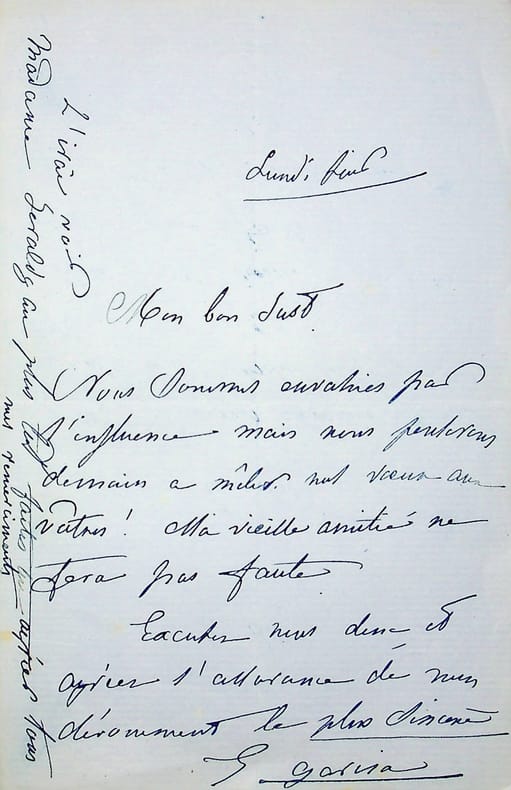 Lundi
Mon bon Just.
Nous sommes envahies par
l'influence mais nous
demain a mêler nos vœux aux
vôtres! Ma vieille amitié ne
fera pas faute
Excusez nous donc et
agréez l'assurance de mon
dévouement le plus sincère
G.
L'irai voir
Madame au plus
agréer tous
mes remerciements